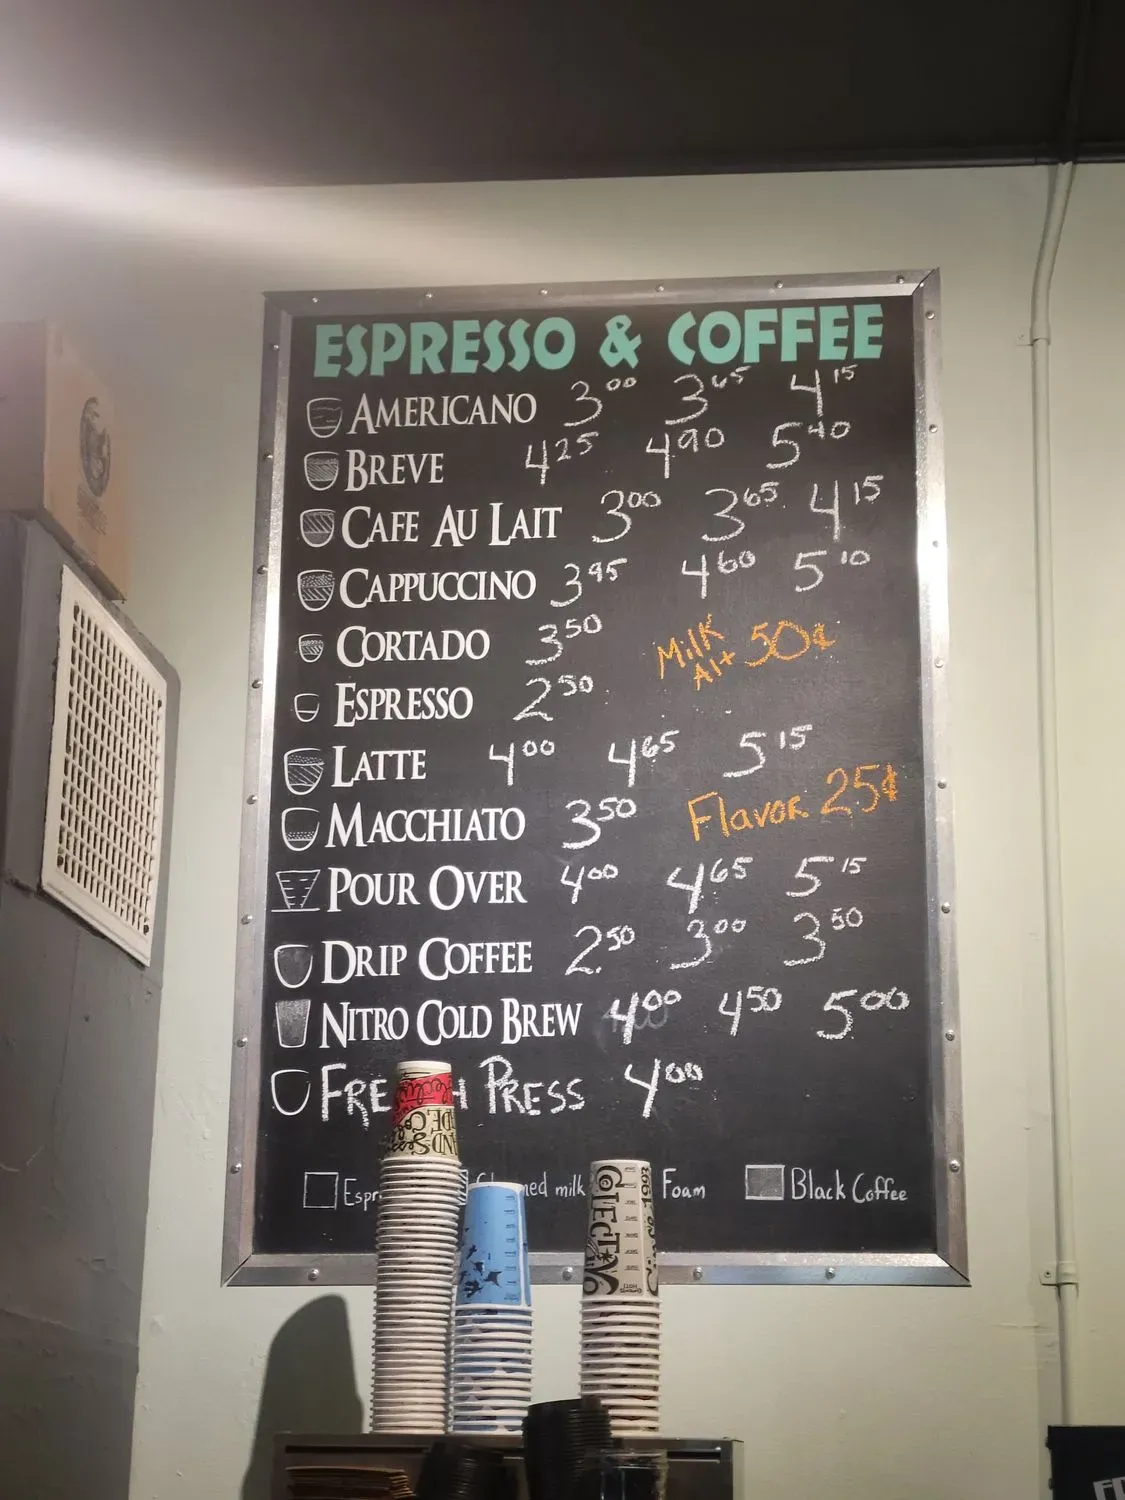 ESPRESSO & COFFEE
AMERICANO 3.00 3.65 4.15
BREVE 4.25 4.90 5.40
CAFE AU LAIT 3.00 3.65 4.15
CAPPUCCINO 3.95 4.60 5.10
CORTADO 3.50
Milk Alt 50¢
ESPRESSO 2.50
LATTE 4.00 4.65 5.15
MACCHIATO 3.50
Flavor 25¢
POUR OVER 4.00 4.65 5.15
DRIP COFFEE 2.50 3.00 3.50
NITRO COLD BREW 4.00 4.50 5.00
FRE H PRESS 4.00
Espr med milk Foam Black Coffee